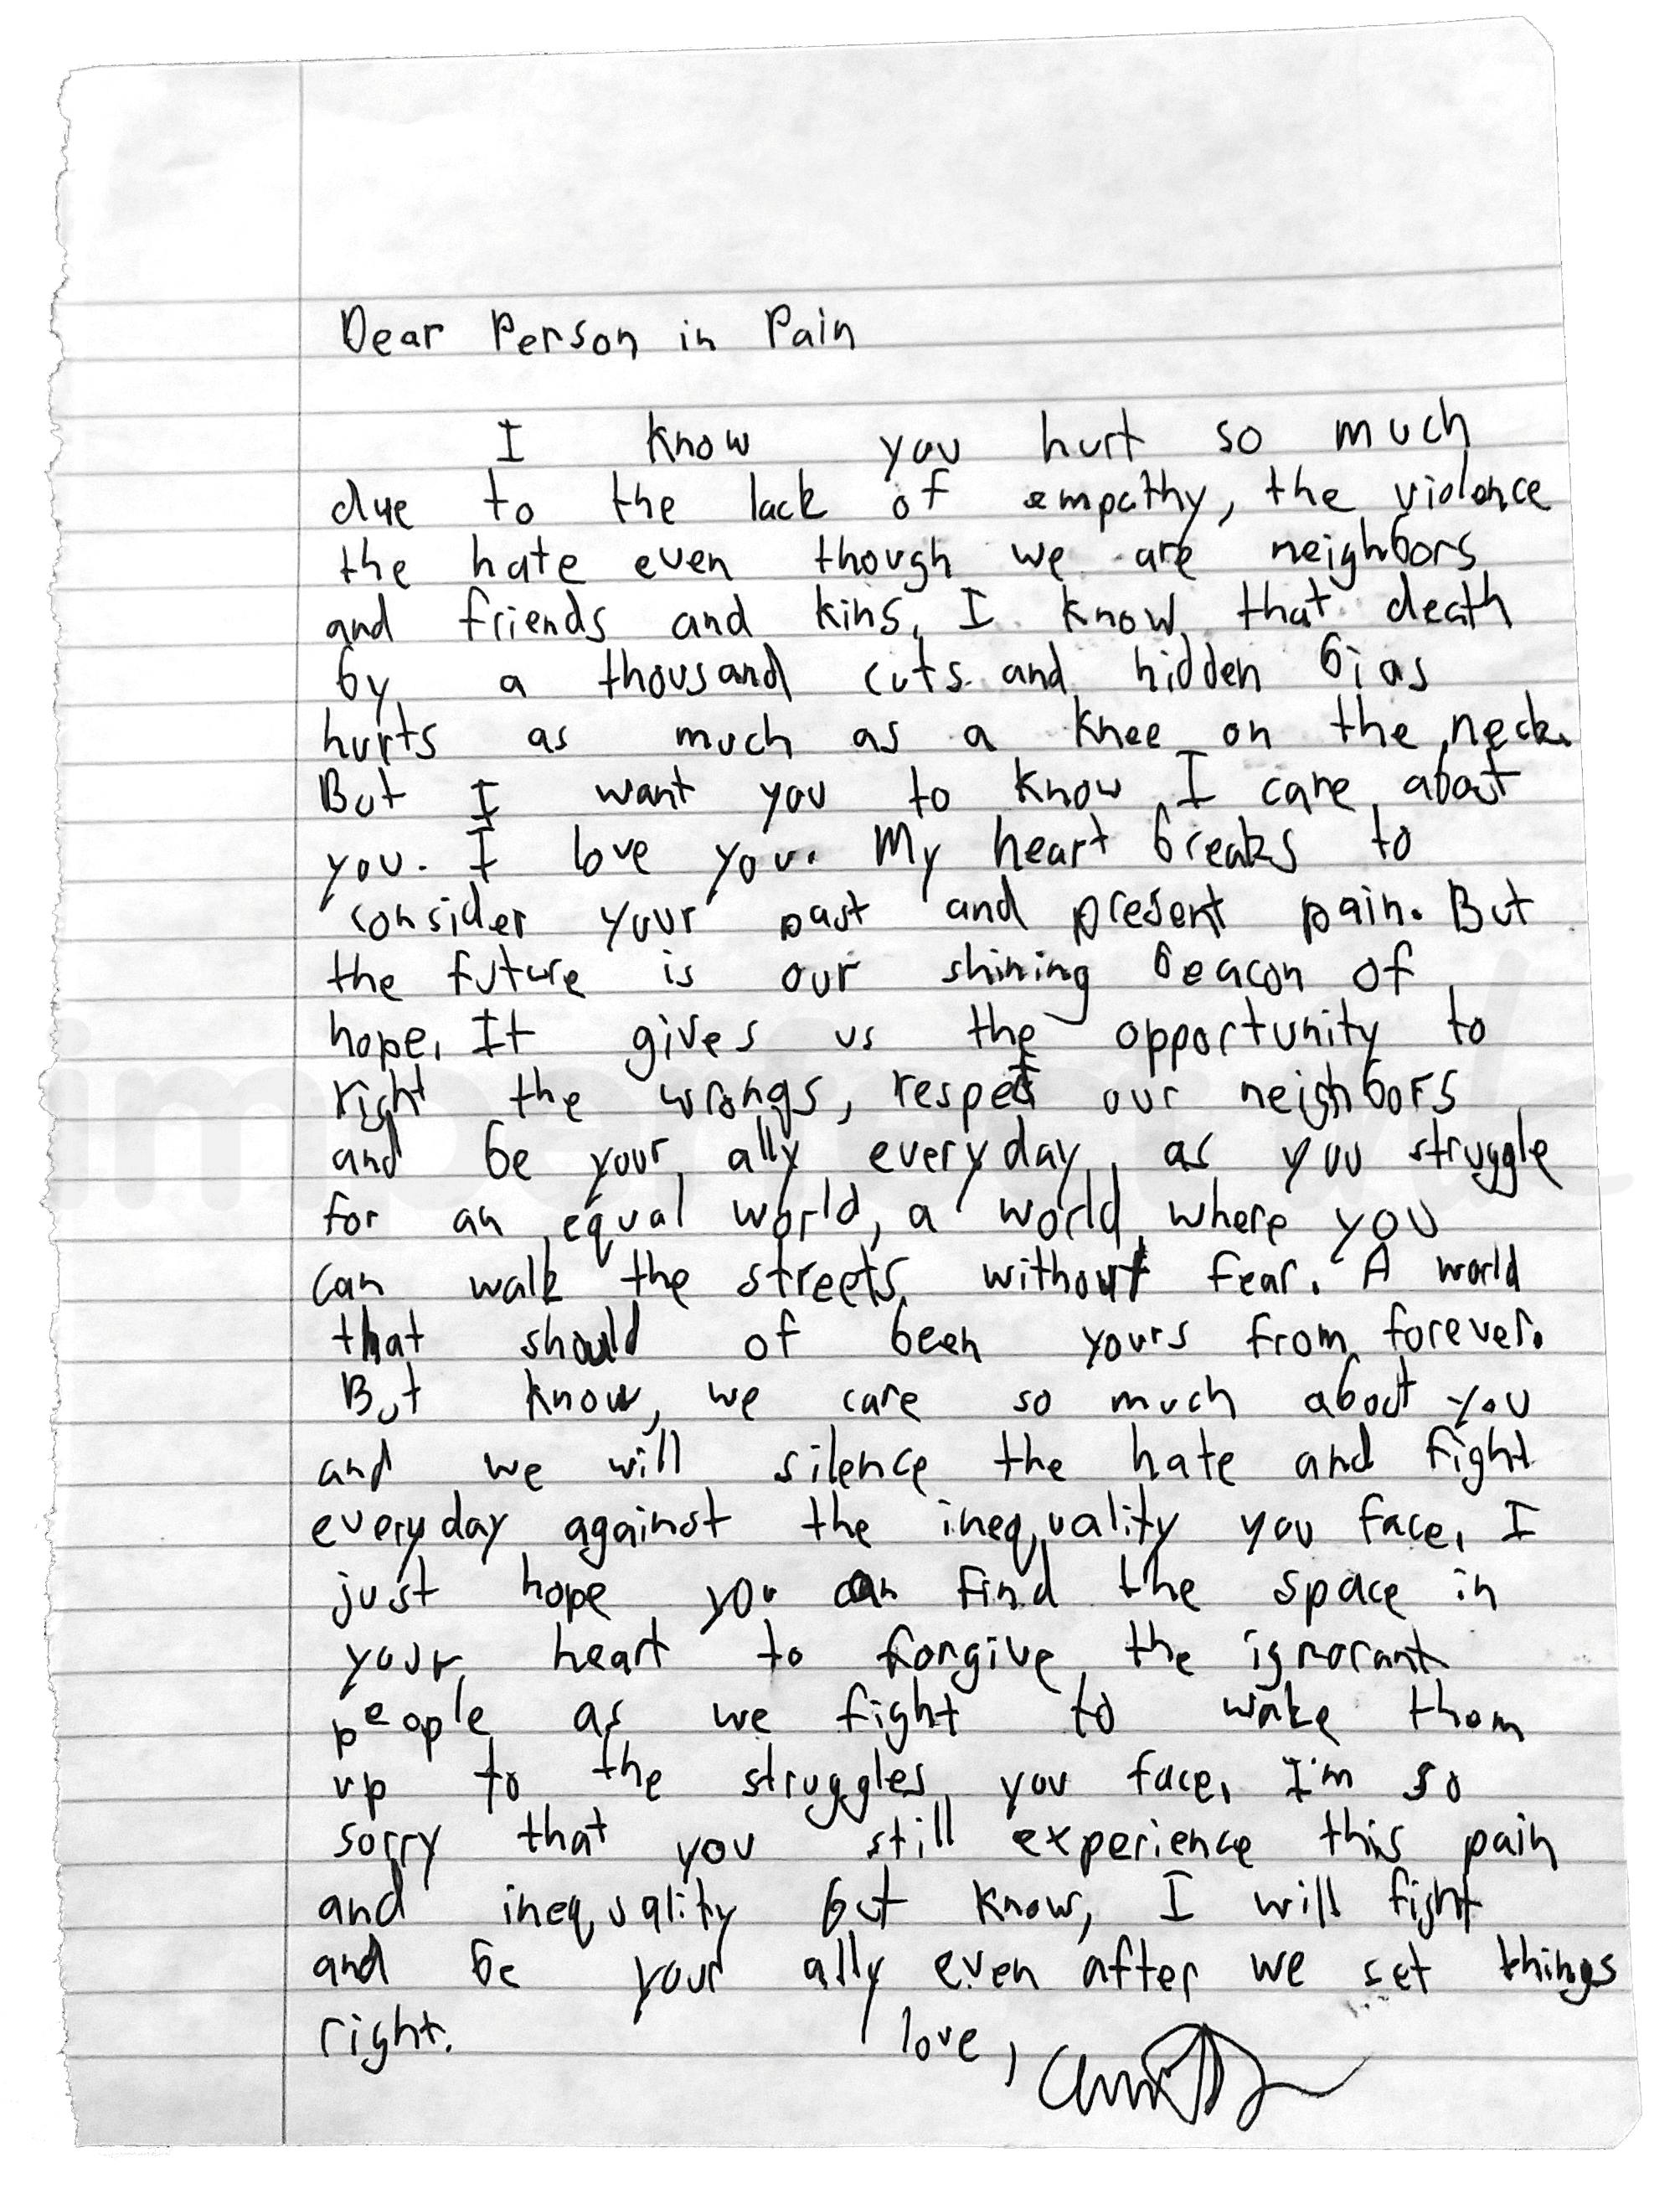 Dear Person in Pain
I know you hurt so much
due to the lack of empathy, the violence
the hate even though we are neighbors
and friends and kins, I know that death
by a thousand cuts and hidden bias
hurts as much as a knee on the neck.
But I want you to know I care about
you. I love you. My heart breaks to
consider your past and present pain. But
the future is our shining beacon of
hope, It gives us the opportunity to
right the wrongs, respect our neighbors
and be your ally everyday, as you struggle
for an equal world, a world where you
can walk the streets without fear. A world
that should of been yours from forever.
But know, we care so much about you
and we will silence the hate and fight
everyday against the inequality you face, I
just hope you can find the space in
your heart to forgive the ignorant
people as we fight to wake them
up to the struggles you face, I'm so
sorry that you still experience this pain
and inequality but know, I will fight
and be your ally even after we set things
right. love,